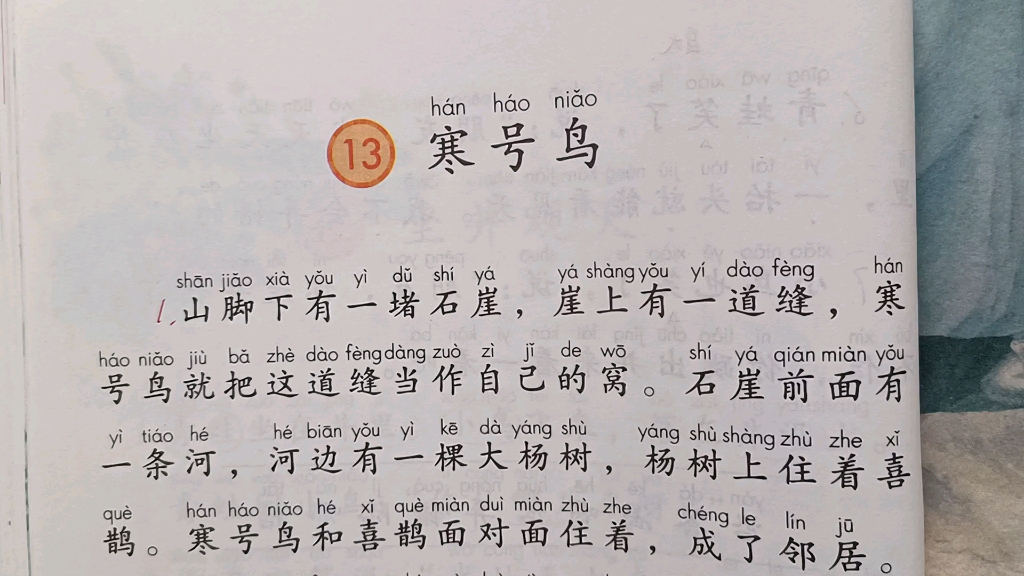 hán háo niǎo
13 寒号鸟
shān jiǎo xià yǒu yì dǔ shí yá yá shàng yǒu yí dào fèng hán
1. 山脚下有一堵石崖，崖上有一道缝，寒
háo niǎo jiù bǎ zhè dào fèng dàng zuò zì jǐ de wō shí yá qián miàn yǒu
号鸟就把这道缝当作自己的窝。石崖前面有
yì tiáo hé hé biān yǒu yì kē dà yáng shù yáng shù shàng zhù zhe xǐ
一条河，河边有一棵大杨树，杨树上住着喜
què hán háo niǎo hé xǐ què miàn duì miàn zhù zhe chéng le lín jū
鹊。寒号鸟和喜鹊面对面住着，成了邻居。